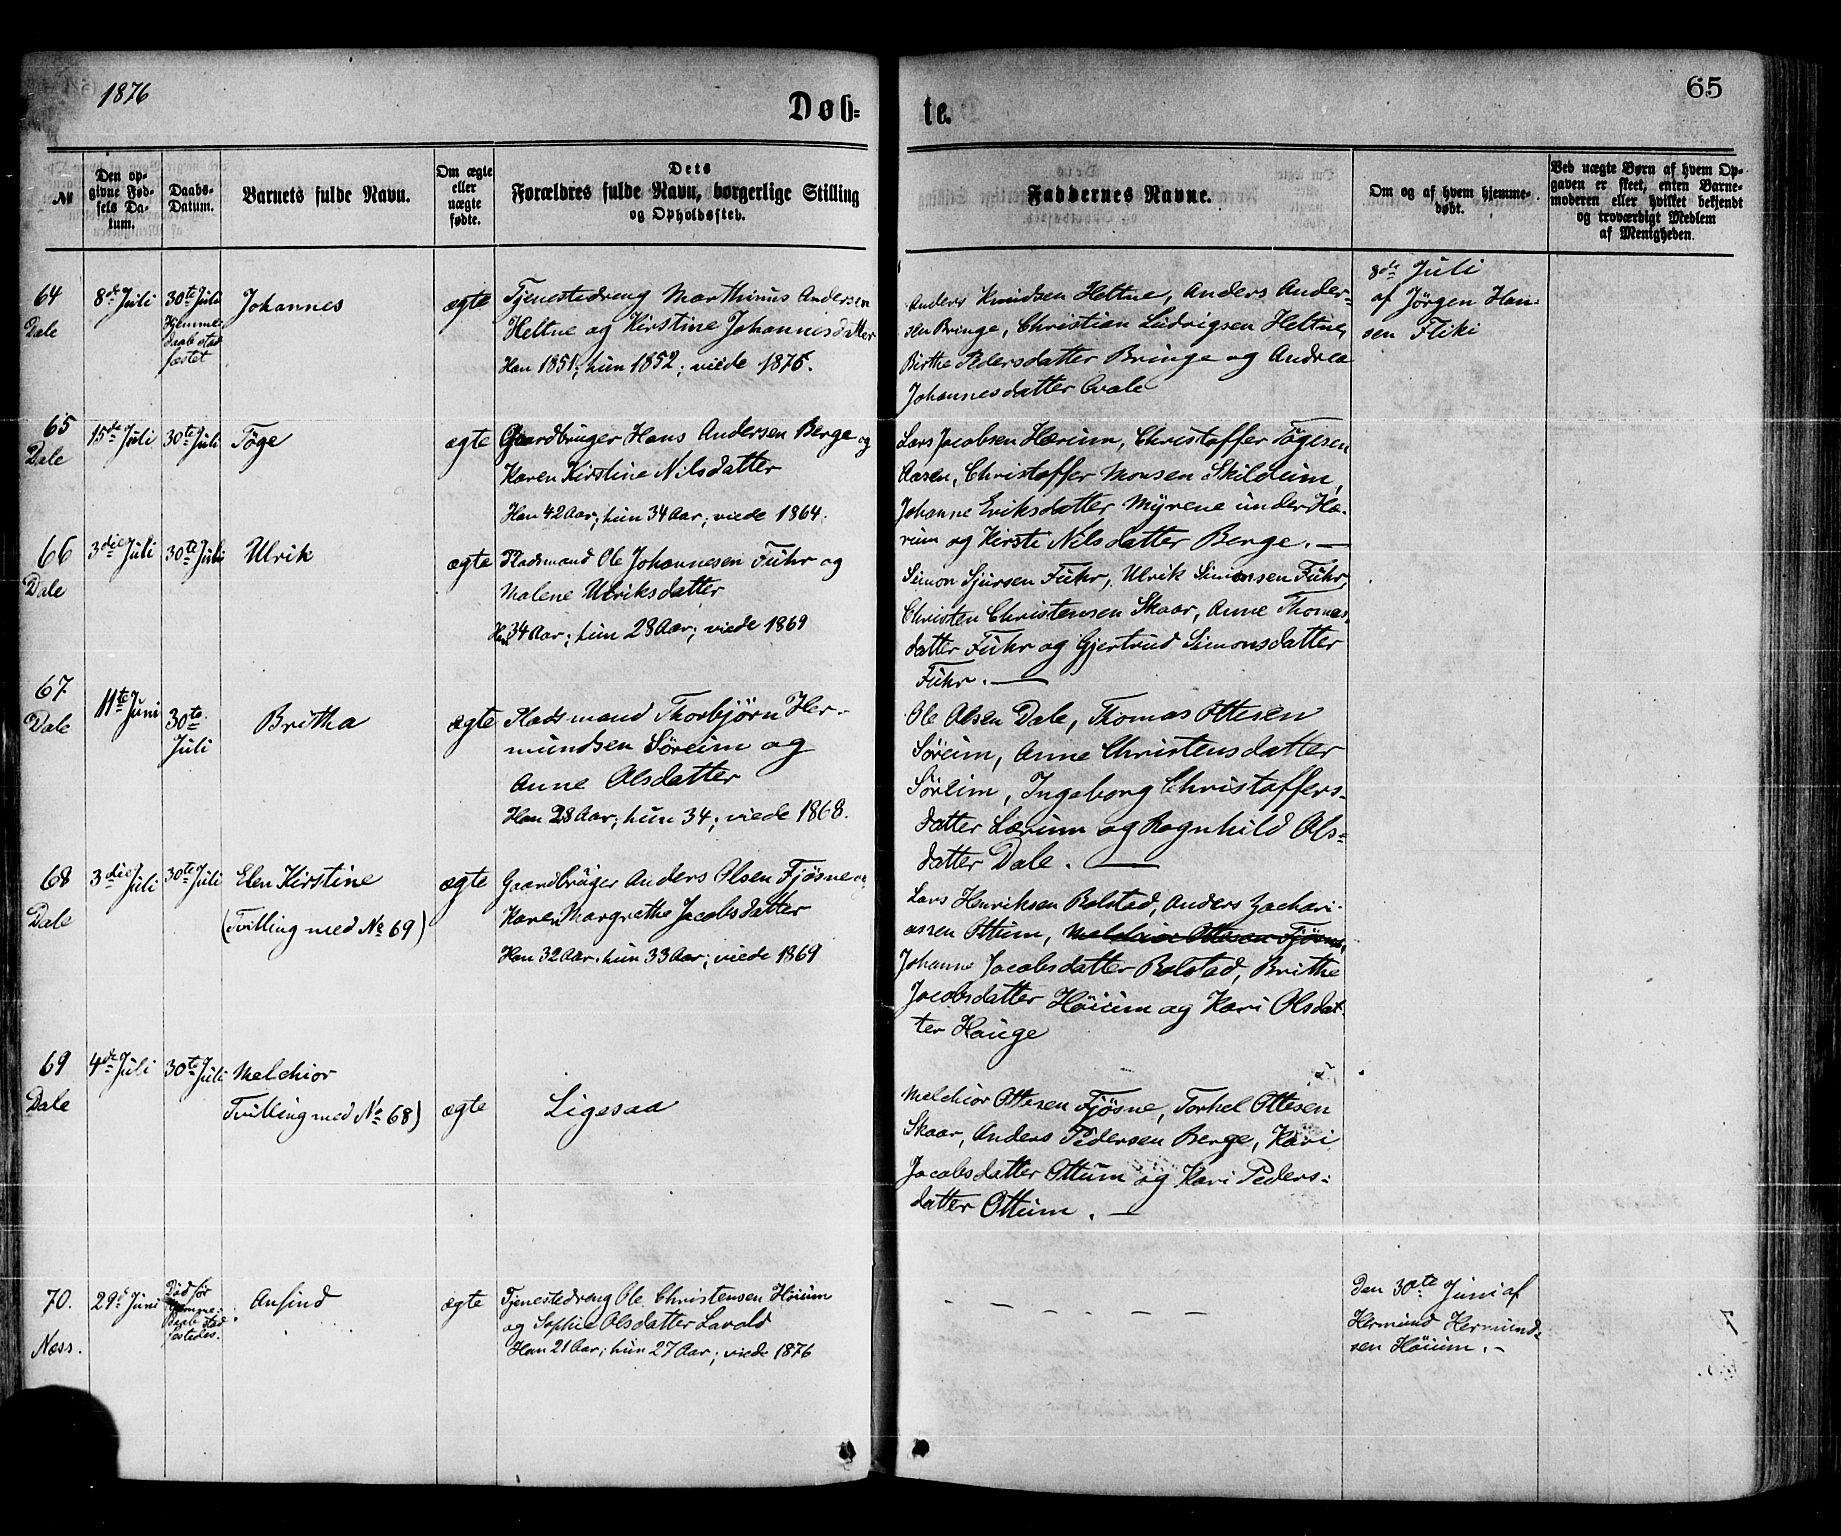 1876
65
Døb-
te.
№
Den op-
givne Fød-
sels Da-
tum.
Daabs-
Datum.
Barnets fulde Navn.
Om ægte
eller
uægte
fødte.
Dets
Forældres fulde Navn, borgerlige Stilling
og Opholdssted.
Faddernes Navne.
Om og af hvem hjemme-
døbt.
Ved uægte Børn af hvem Op-
gaven er skeet, enten Barne-
moderen eller hvilket bekjendt
og troværdigt Medlem
af Menigheden.
64
Dale
8de Juli
30te Juli
Hjemme-
daab stad
fæstet
Johannes
ægte
Tjenestedreng Marthinus Andersen
Heltne og Kirstine Johannisdatter
Han 1851; hun 1852; viede 1875.
Anders Knudsen Heltne, Anders Ander-
sen Bringe, Christian Ludvigsen Heltne,
Birthe Pedersdatter Bringe og Andrea
Johannesdatter Qvale
8de Juli
af Jørgen Han-
sen Fliki
65
Dale
15de Juli
30te Juli
Tøge
ægte
Gaardbruger Hans Andersen Berge og
Karen Kirstine Nilsdatter
Han 42 Aar; hun 34 Aar; viede 1864.
Lars Jacobsen Hærum, Christoffer Tøgesen
Aasen, Christoffer Monsen Skildum,
Johanne Eriksdatter Myrene under Hæ-
rum og Kirsti Nilsdatter Berge. —
66
Dale
3die Juli
30te Juli
Ulrik
ægte
Pladsmand Ole Johannesen Fuhr og
Malene Ulriksdatter
Han 34 Aar; hun 28 Aar; viede 1869
Simon Sjursen Fuhr, Ulrik Simonsen Fuhr,
Christen Christensen Skaar, Anne Thomas-
datter Fuhr og Gjertrud Simonsdatter
Fuhr. —
67
Dale
11te Juni
30te
Juli
Britha
ægte
Pladsmand Thorbjørn Her-
mundsen Søreim og
Anne Olsdatter
Han 28 Aar; hun 34; viede 1868.
Ole Olsen Dale, Thomas Ottesen
Søreim, Anne Christensdatter
Søreim, Ingeborg Christoffers-
datter Lærum og Ragnhild Ols-
datter Dale. —
68
Dale
3die Juli
30te Juli
Elen Kirstine
(Tvilling med № 69)
ægte
Gaardbruger Anders Olsen Fjøsne og
Karen Margrethe Jacobsdatter
Han 32 Aar, hun 33 Aar; viede 1869
Lars Henriksen Bolstad, Anders Zachari-
assen Ottum, Melchior Ottesen Fjøsne,
Johanne Jacobsdatter Bolstad, Brithe
Jacobsdatter Høium og Kari Olsdat-
ter Hauge
69
Dale
4de Juli
30te Juli
Melchior
Tvilling med № 68)
ægte
Ligesaa
Melchior Ottesen Fjøsne, Torkel Ottesen
Skaar, Anders Pedersen Berge, Kari
Jacobsdatter Ottum og Kari Peders-
datter Ottum. —
70.
Næss.
29de Juni
Død før
Hjemme-
daab stad
fæstedes.
Ansind
ægte
Tjenestedreng Ole Christensen Høium
og Sophie Olsdatter Lavold
Han 21 Aar; hun 27 Aar; viede 1876
— — — — — —
Den 30te Juni af
Hermund Hermund-
sen Høium. -